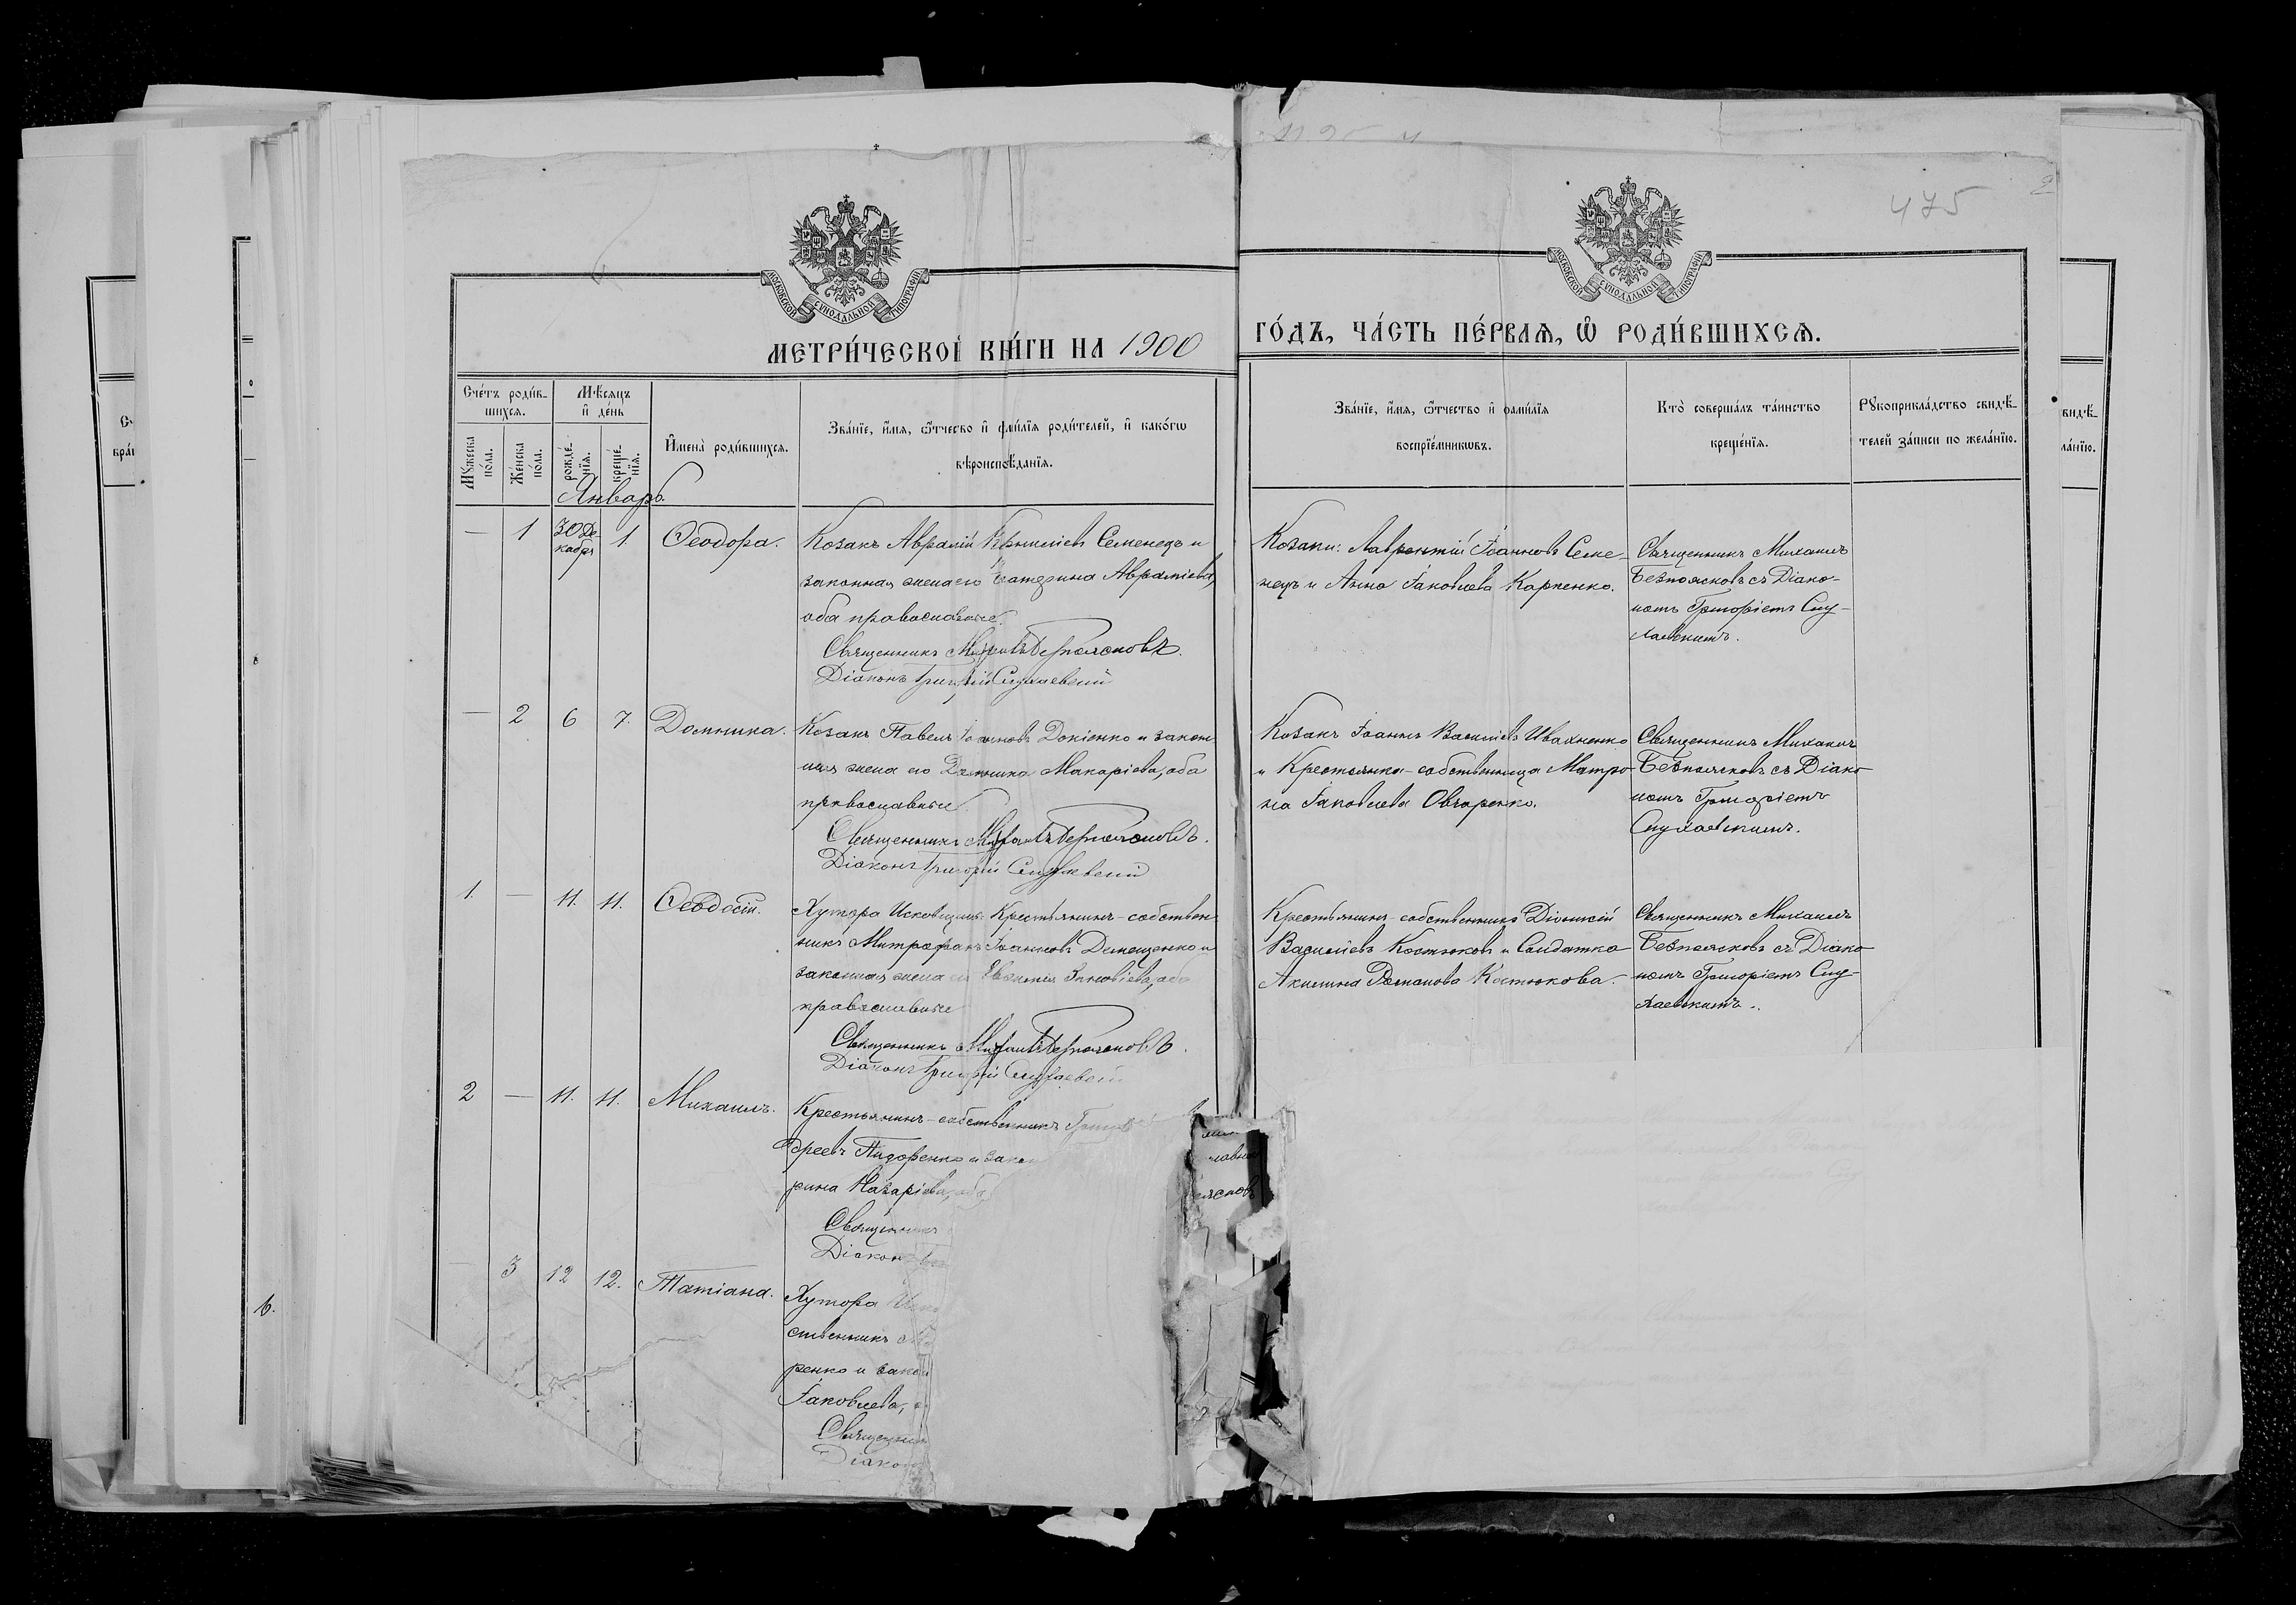 475
МОСКОВСКОЙ СѴНОДАЛЬНОЙ ТИПОГРАФІИ
МОСКОВСКОЙ СѴНОДАЛЬНОЙ ТИПОГРАФІИ
МЕТРИ́ЧЕСКОЙ КНИ́ГИ НА 1900
ГО́ДЪ, ЧА́СТЬ ПЕ́РВАѦ, Ѡ҆ РОДИ́ВШИХСѦ.
Сче́тъ роди́в-
шихсѧ.
Мꙋ́жеска по́ла.
Же́нска по́ла.
Мѣ́сѧцъ и҆ де́нь
рожде́-нїѧ.
креще́-нїѧ.
И҆мена̀ роди́вшихсѧ.
Зва́нїе, и҆́мѧ, ѻ҆́тчество и҆ фами́лїѧ роди́телей, и҆ како́гѡ
вѣроисповѣ́данїѧ.
Зва́нїе, и҆́мѧ, ѻ҆́тчество и҆ фами́лїѧ
воспрїе́мникѡвъ.
Кто̀ соверша́лъ та́инство
креще́нїѧ.
Рꙋкоприкла́дство свидѣ́-
телей за́писи по жела́нїю.
Январь.
— 1 30 Де-кабря 1. Ѳеодора.
Козакъ Аврамій Семенецъ и
законная жена его Екатерина Аврамiева,
оба православные.
Священникъ Михаилъ Безпоясковъ.
Діаконъ Григорій
Козаки: Лаврентій Іоанновъ Семе-
нецъ и Анна Іаковлева Карпенко.
Священникъ Михаилъ
Безпоясковъ съ Діако-
номъ Григоріемъ
— 2 6 7. Домника.
Козакъ Павелъ Іоанновъ Докіенко и закон-
ная жена его Домника Макаріева, оба
православные.
Священникъ Михаилъ Безпоясковъ.
Діаконъ Григорій
Козакъ Іоаннъ Василіевъ Ивахненко
и Крестьянка-собственница Матро-
на Іаковлева Овчаренко.
Священникъ Михаилъ
Безпоясковъ съ Діако-
номъ Григоріемъ
1. — 11. 11. Ѳеодосій.
Хутора Крестьянинъ-собствен-
никъ Митрофанъ Іоанновъ Демещенко и
законная жена его Зиновіева, оба
православные
Священникъ Михаилъ Безпоясковъ.
Діаконъ Григорій
Крестьянинъ-собственникъ Діонисій
Василіевъ Костюковъ и Солдатка
Акилина Романова Костюкова.
Священникъ Михаилъ
Безпоясковъ съ Діако-
номъ Григоріемъ
2 — 11. 11. Михаилъ.
Крестьянинъ-собственникъ
дреевъ и
рина Назаріева, оба
Священникъ
Діаконъ
— 3 12 12. Татіана.
Хутора
ственникъ
ренко и закон
Іаковлева,
Священник
Діакон